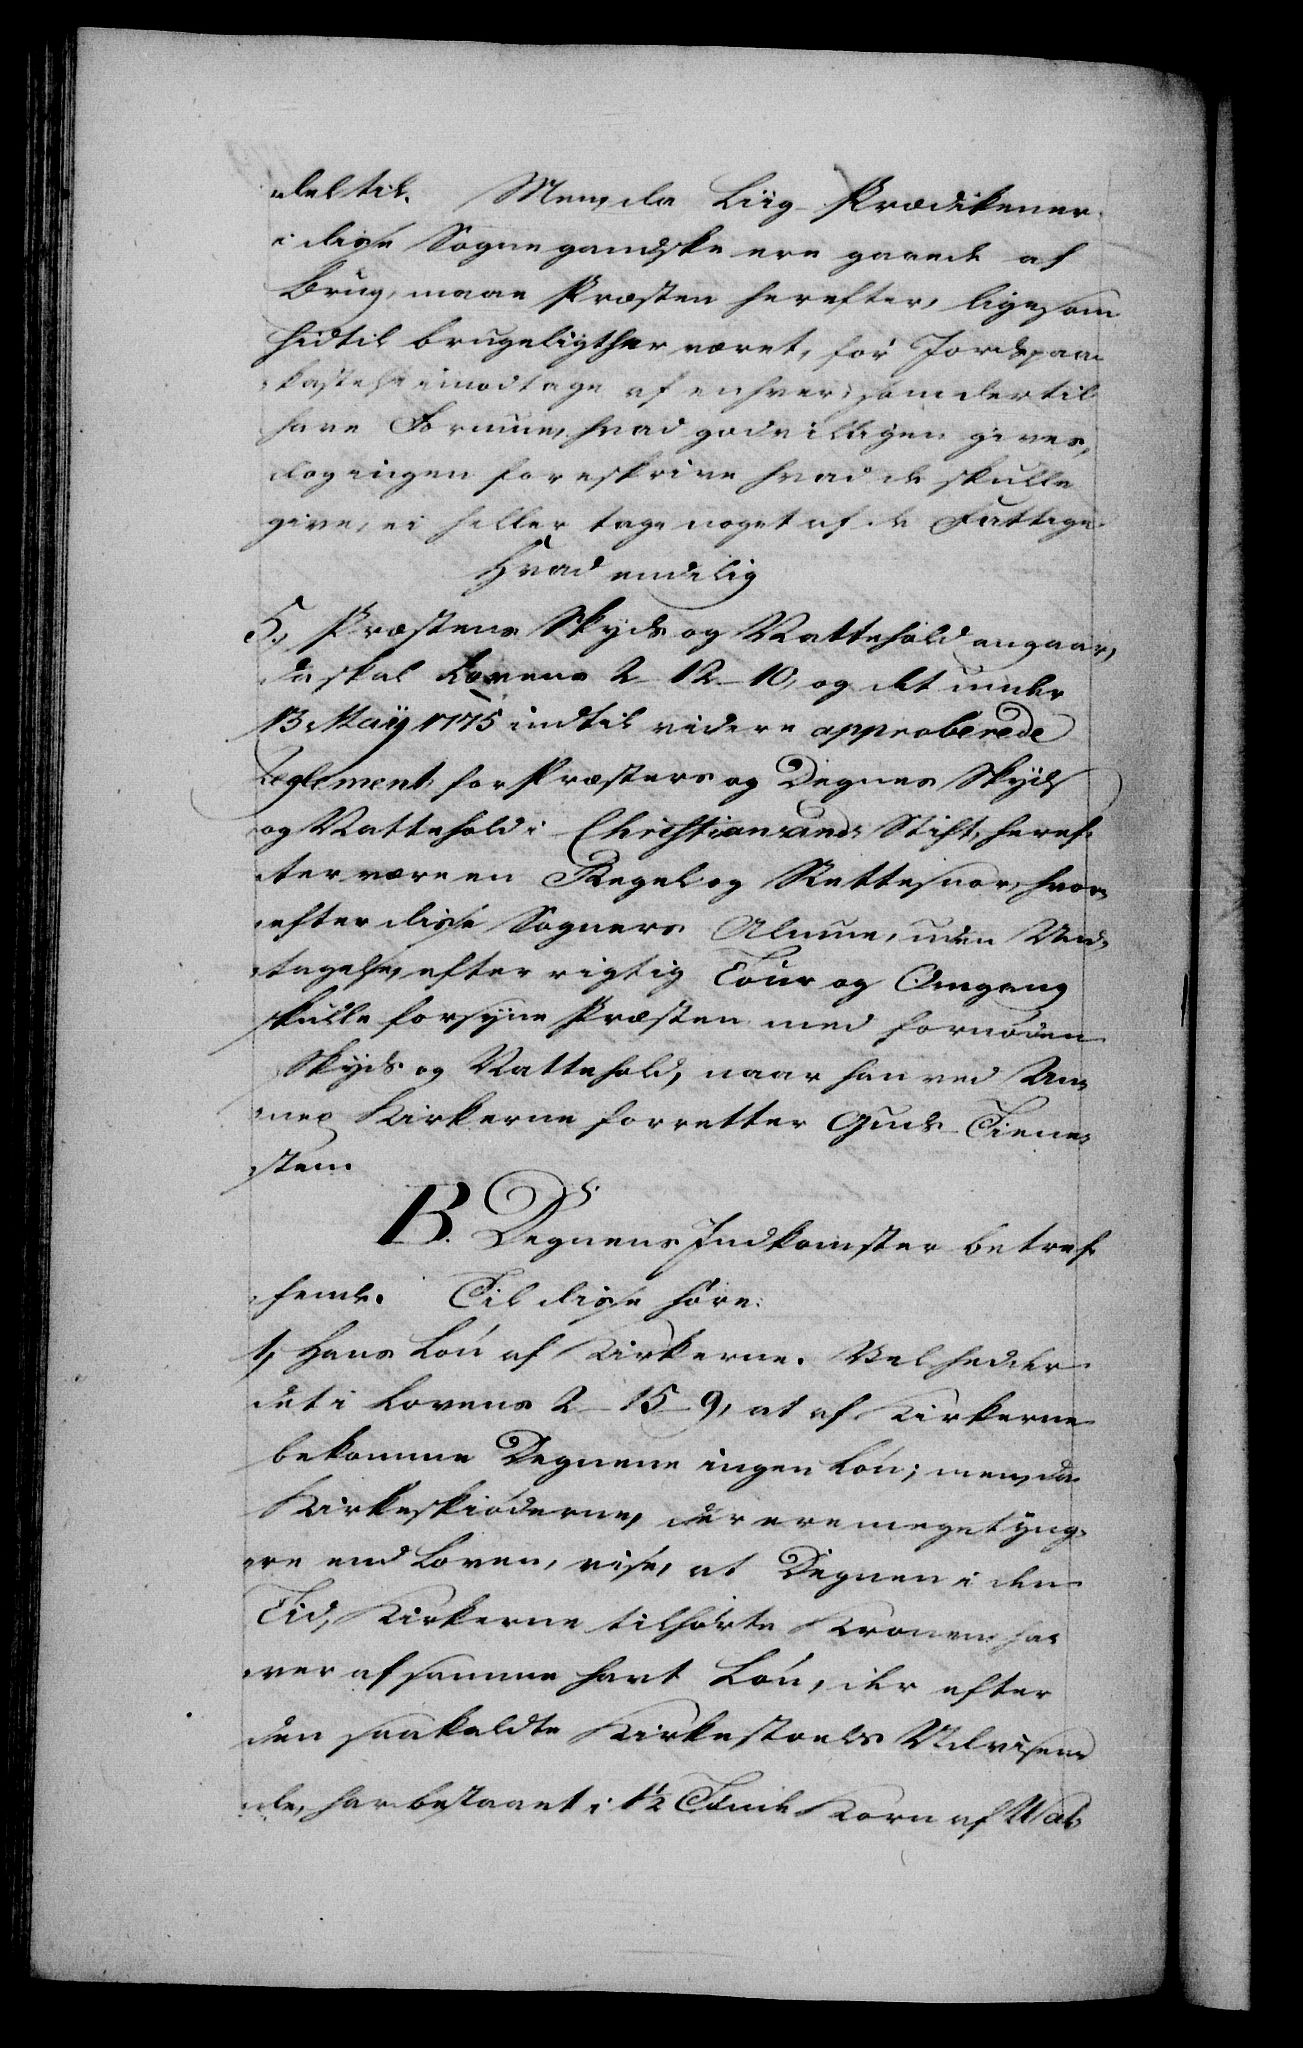 deltil. Men, da Liig-Prædikener
i disse Sogne gandske ere gaaede af
Brug, maae Præsten herefter, ligesom
hidtil brugeligt har været, for Jords paa-
kastelse imodtage af enhver, som dertil
have Formue, hvad godvilligen gives,
dog ingen foreskrive hvad de skulle
give, ei heller tage noget af de Fattige.
Hvad endelig
5, Præstens Skyds og Nattehold angaar,
da skal Lovens 2-12-10, og det under
13 Maij 1775 indtil videre approberede
Reglement, for Præsters og Degnes Skyds
og Nattehold i Christiansands Stift, heref-
ter være en Regel og Rettesnor, hvor-
efter disse Sogners Almue, uden Und-
tagelse, efter rigtig Tour og Omgang
skulle forsyne Præsten med fornøden
Skyds og Nattehold, naar han ved An-
nex Kirkerne forretter Guds-Tiene-
sten.
B. Degnens Indkomster betref-
fende. Til disse høre:
1, Hans Løn af Kirkerne. Vel hedder
det i Lovens 2-15-9, at af Kirkerne
bekomme Degnene ingen Løn; men, da
Kirkeskiøderne, der ere meget yng-
re end Loven, vise, at Degnen i den
Tid, Kirkerne tilhørte Kronen, ha-
ver af samme havt Løn, der efter
den saakaldte Kirkestoels Udvisen-
de, har bestaaet i 1½ Tønde Korn af Val-